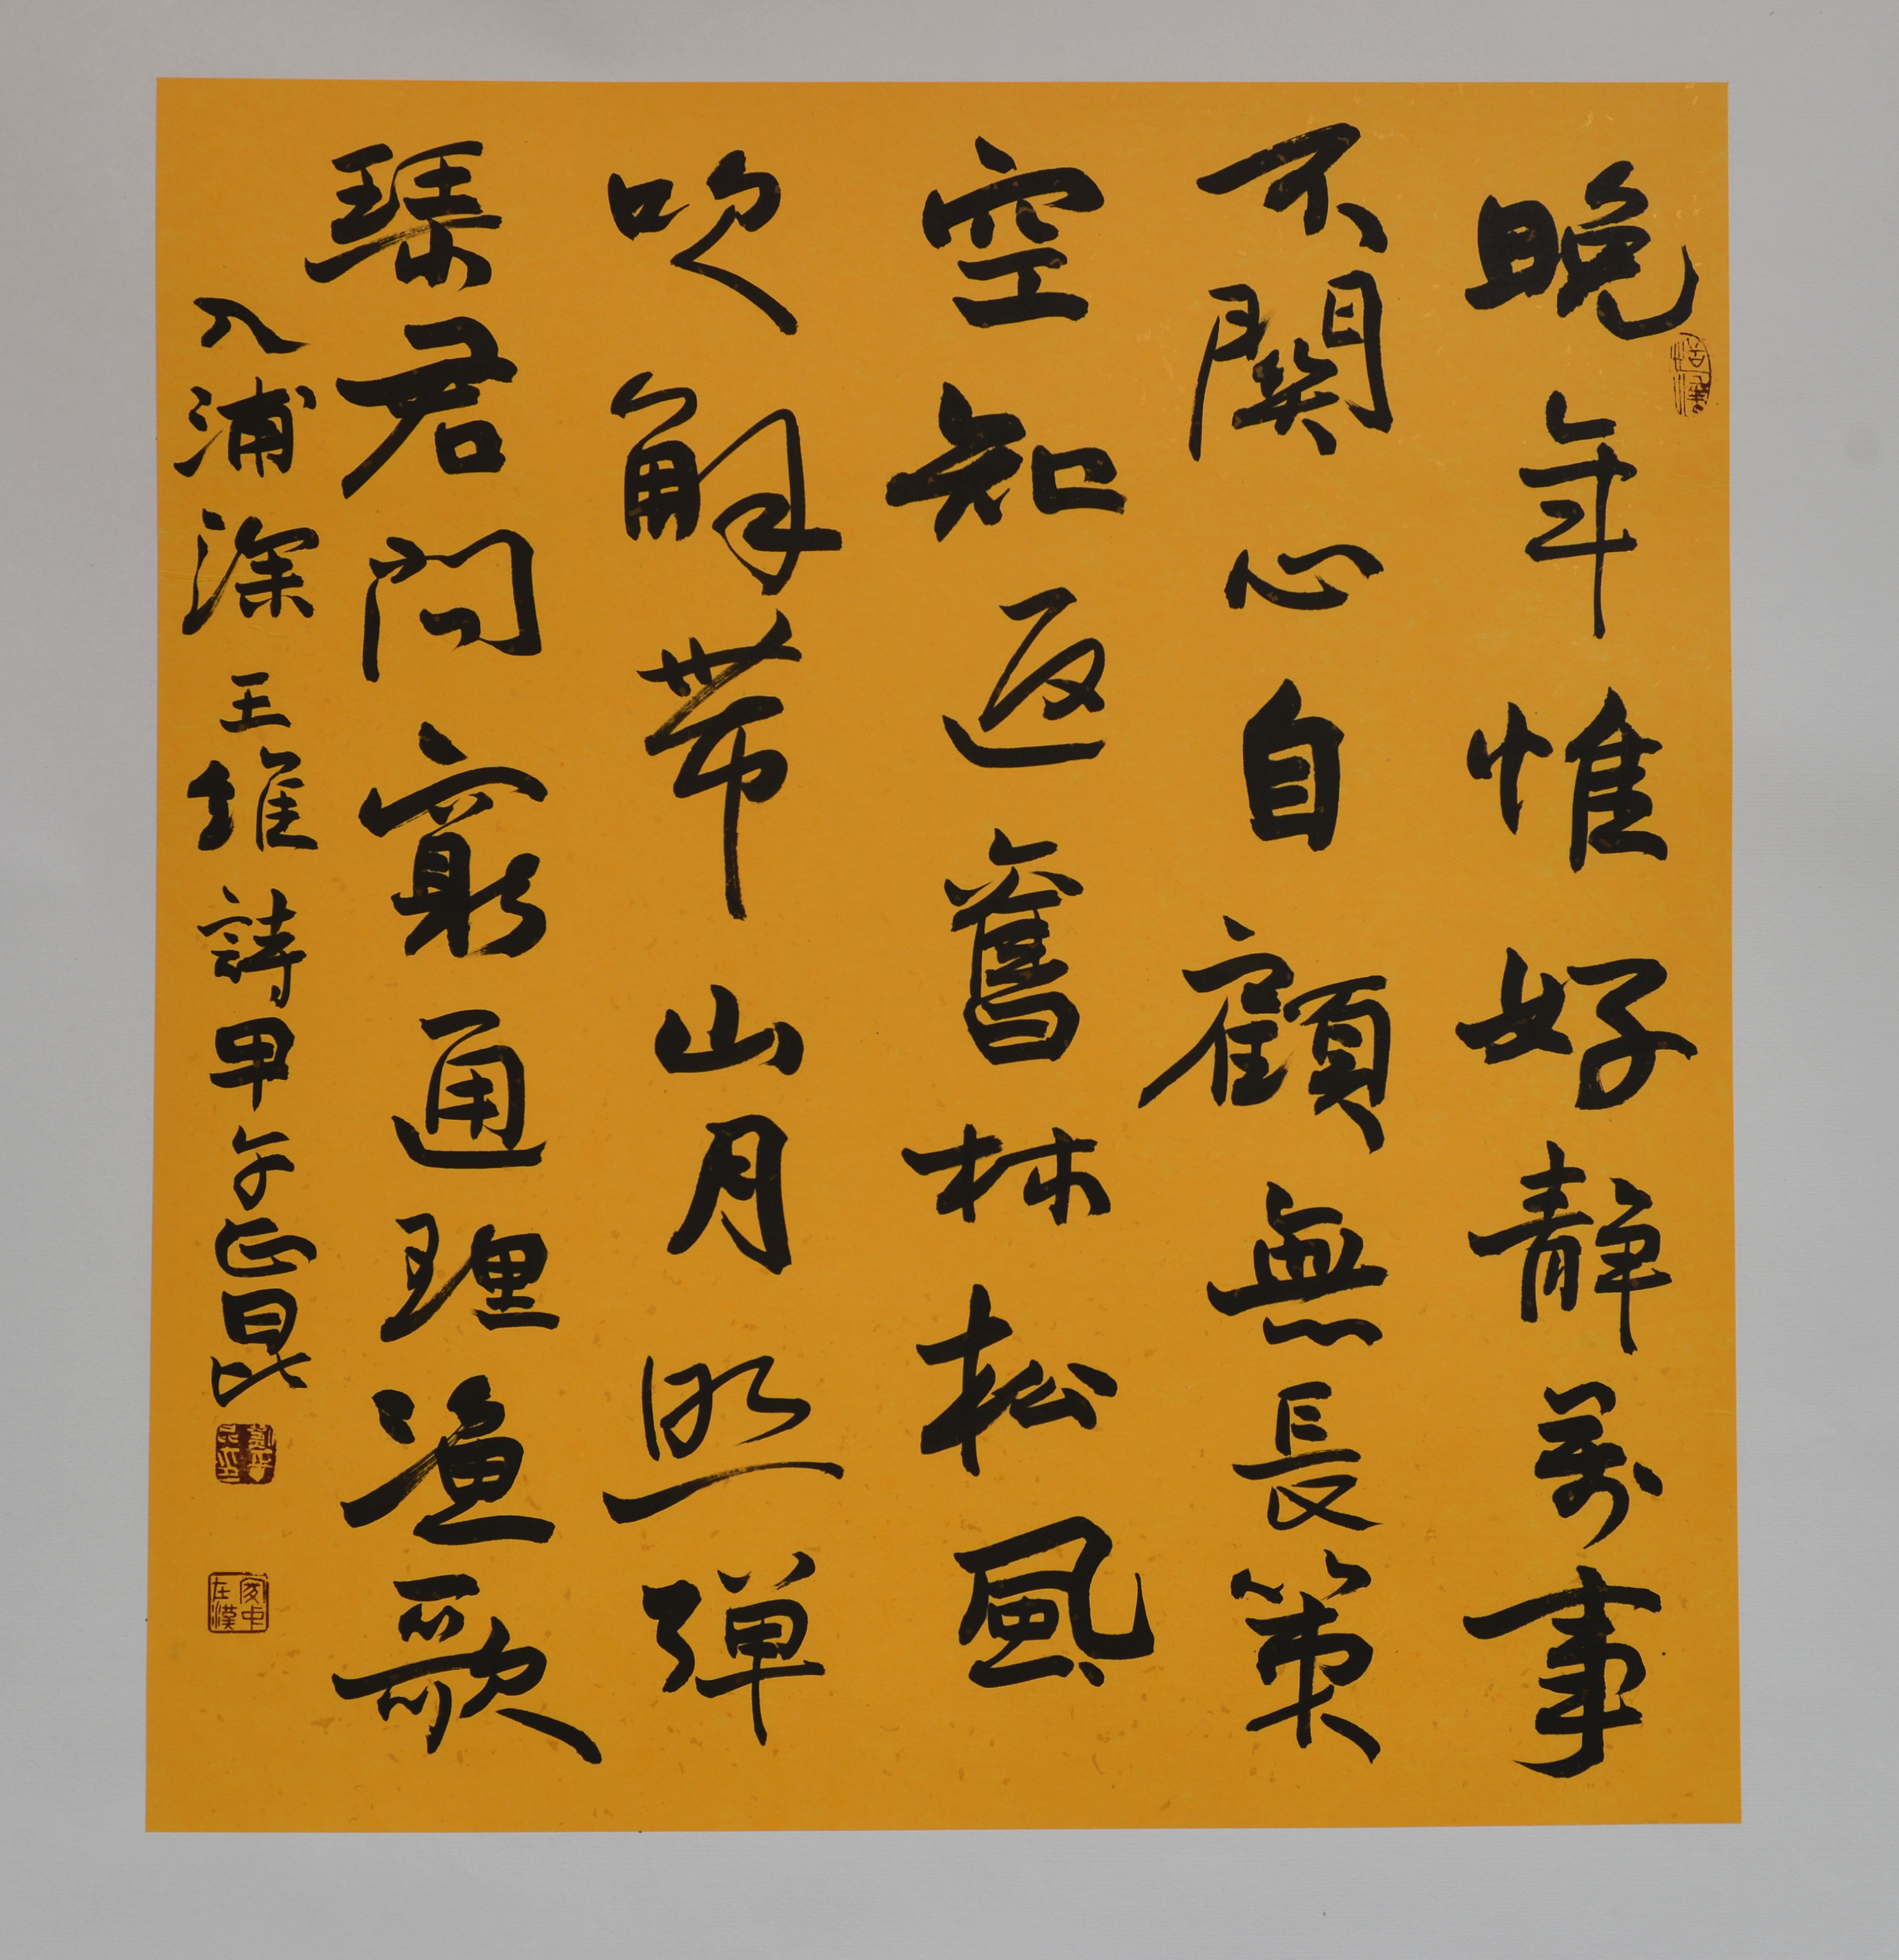 晚年惟好靜萬事
不關心自顧無長策
空知返舊林松風
吹解帶山月照彈
琴君問窮通理漁歌
入浦深 王維詩甲午正昆